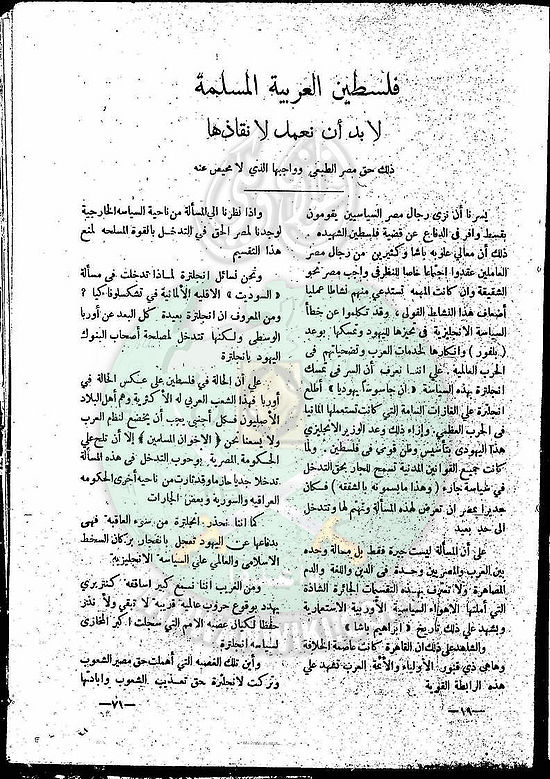 فلسطين العربية المسلمة
لا بد أن نعمل لانقاذها
ذلك حق مصر الطبيعي وواجبها الذي لا محيص عنه
يسرنا أن نرى رجال مصر السياسيين يقومون
بقسط وافر في الدفاع عن قضية فلسطين الشهيده .
ذلك أن معالي علوبه باشا وكثيرين من رجال مصر
العاملين عقدوا اجتماعا خاصا للنظر في واجب مصر نحو
الشقيقة وان كانت المهمه تستدعي منهم نشاطا عمليا
أضعاف هذا النشاط القولى . وقد تكلموا عن خطأ
السياسة الانجليزية في تحيزها لليهود وتمسكها بوعد
( بلفور ) وانكارها لخدمات العرب وتضحياتهم في
الحرب العالمية . على اننا نعرف أن السر في تمسك
انجلترة بهذه السياسة « ان جاسوسا يهوديا » أطلع
انجلترة على الغازات السامة التي كانت تستعملها المانيا
في الحرب العظمى . وإزاء ذلك وعد الوزير الانجليزي
هذا اليهودي بتأسيس وطن قومى في فلسطين . ولما
كانت جميع القوانين المدنية تسمح للجار بحق التدخل
في سياسة جاره ( وهذا ما يسمونه بالشفعة ) فكان
جديرا بمصر ان تعرض لهذه المسألة وتهتم لها وتتدخل
الى حد بعيد
على أن المسألة ليست جيرة فقط بل مسألة وحده
بين العرب والمصريين وحدة في الدين واللغة والدم
المصاهرة ولا تعترف بهذه التقسيمات الجائرة الشاذة
التي أملتها الاهواء السياسية الأوربية الاستعمارية
ويشهد على ذلك تاريخ « ابراهيم باشا »
والشاهد على ذلك ان القاهرة كانت عاصمة الخلافة
وهاهى ذي قبور الأولياء والأئمة العرب تشهد على
هذه الرابطة القوية
— ١٩ —
واذا نظرنا الى المسألة من ناحية السياسه الخارجية
لوجدنا لمصر الحق في التدخل بالقوة المسلحه لمنع
هذا التقسيم
ونحن نسائل انجلترة لماذا تدخلت في مسألة
« السوديت » الاقليه الألمانية في تشكسلوفاكيا ؟
ومن المعروف ان انجلترة بعيدة كل البعد عن أوربا
الوسطى ولكنها تتدخل لمصلحة أصحاب البنوك
اليهود بانجلترة
على أن الحالة في فلسطين على عكس الحالة في
أوربا فهذا الشعب العربي له الأكثرية وهم أهل البلاد
الأصليون فكل أجنبي يجب أن يخضع لنظم العرب
ولا يسعنا نحن ( الاخوان المسلمين ) إلا أن نلح على
الحكومة المصرية بوجوب التدخل في هذه المسألة
تدخلا جديا حازما وقد ثارت من ناحية أخرى الحكومه
العراقيه والسورية وبعض الجارات
كما اننا نحذر انجلترة من سوء العاقبه فهى
بدفاعها عن اليهود تعجل بانفجار بركان السخط
الاسلامى والعالمي على السياسه الانجليزيه
ومن الغريب اننا نسمع كبير اساقفة كنتربري
يهدد بوقوع حروب عالميه قريبه لا تبقى ولا تذر
حفظا لكيان عصبه الامم التي سجلت اكبر المخازى
لسياسة انجلترة
وأين تلك العصبه التي أهملت حق مصير الشعوب
وتركت لانجلترة حق تعذيب الشعوب وابادتها
— ٧١ —